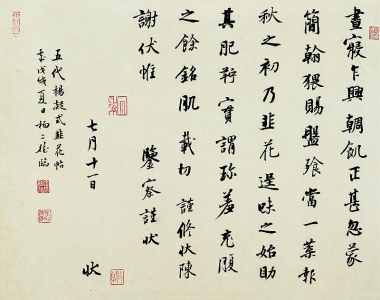 晝寢乍興輖飢正甚忽蒙
簡翰猥賜盤飧當一葉報
秋之初乃韭花逞味之始助
其肥羜實謂珍羞充腹
之餘銘肌載切謹修狀陳
謝伏惟鑒察謹狀
七月十一日
狀
五代楊凝式韭花帖